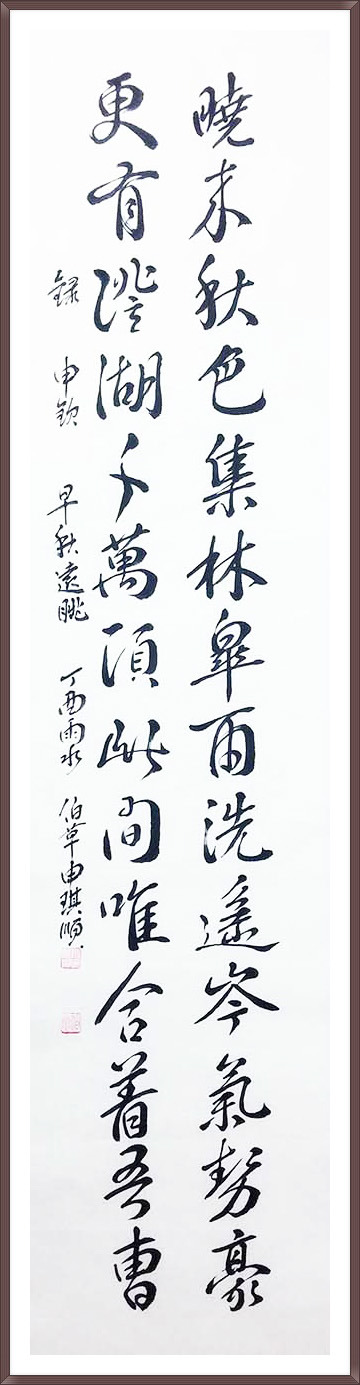 曉來秋色集林皋雨洗遙岑氣勢豪
更有澄湖千萬頃此間唯合着吾曹
錄 申欽 早秋遠眺 丁酉雨水 伯草申琪順